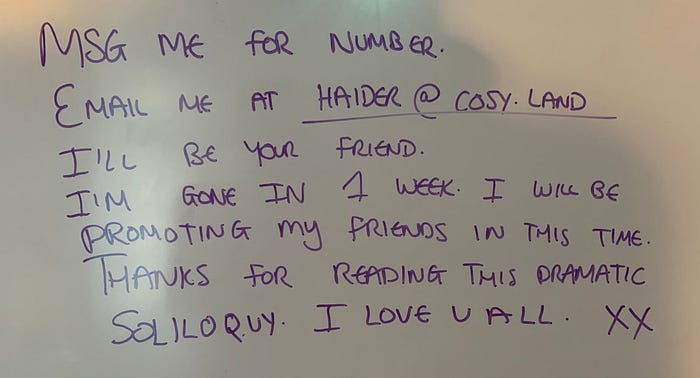 MSG ME FOR NUMBER.
EMAIL ME AT HAIDER @ COSY.LAND
I'LL BE YOUR FRIEND.
I'M GONE IN 1 WEEK. I WILL BE
PROMOTING MY FRIENDS IN THIS TIME.
THANKS FOR READING THIS DRAMATIC
SOLILOQUY. I LOVE U ALL. XX